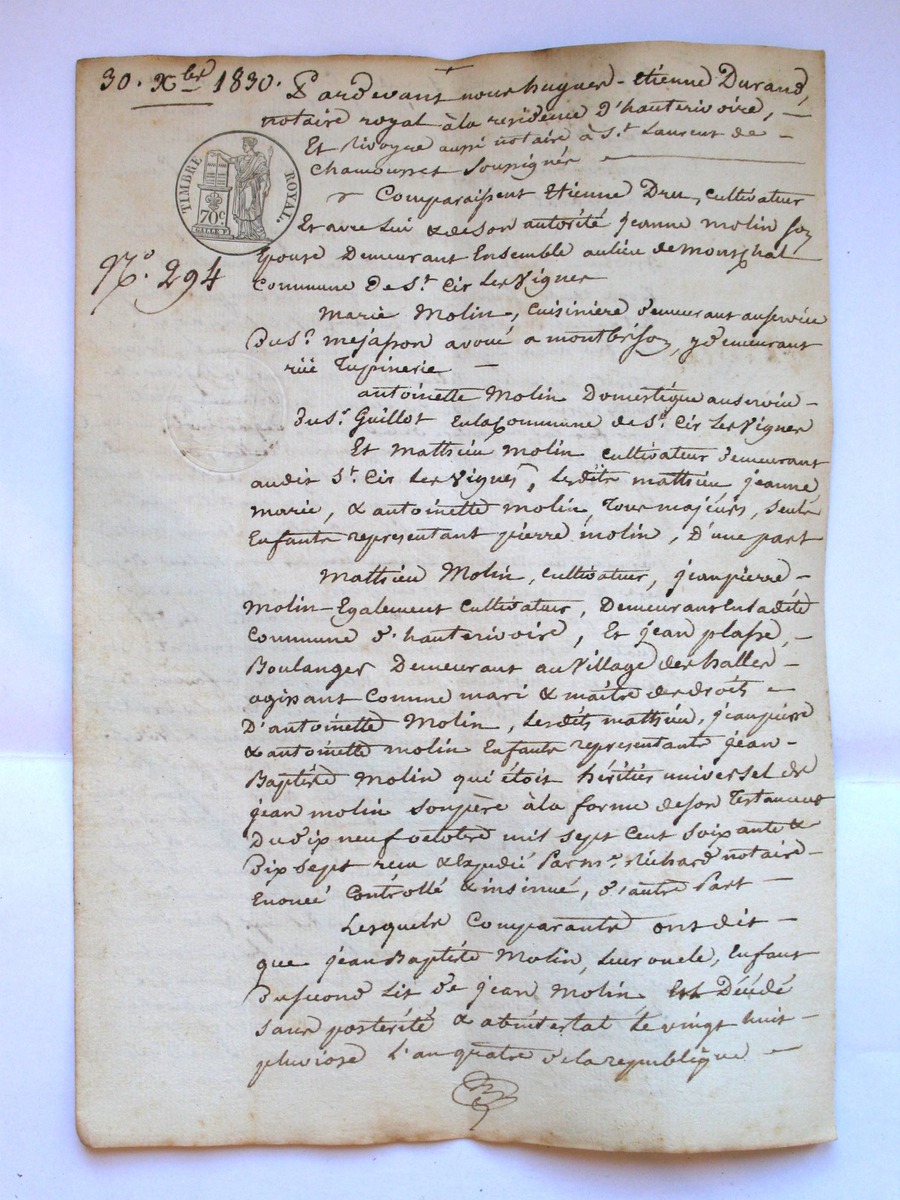 30. Xbre 1830.
Pardevant nous hugues-Etienne Durand,
notaire royal à la residence d'hauterivoire,
Et Rivoyre aussi notaire à St. Laurent de
Chamousset soussignés
TIMBRE ROYAL.
70c
N.o 294
Comparaissent Etienne Dru, cultivateur
Et avec Lui & de son autorité jeanne molin son
Epouse Demeurant Ensemble au lieu de
Commune De St. Cir Les Vignes
Marie Molin, Cuisinière demeurant au service
Du Sr. mejasson avoué a montbrison, y demeurant
rüe Tupinerie
antoinette Molin Domestique au service
Du Sr. Guillot En la Commune de St. Cir Les Vignes
Et Mathieu Molin cultivateur demeurant
audit St. Cir Les Vignes, Lesdits mathieu jeanne,
marie, & antoinette molin, Tous majeurs, seuls
Enfants representant pierre molin, D'une part
Mathieu Molin, cultivateur, jean pierre
Molin Egalement cultivateur, Demeurant En ladite
Commune d'hauterivoire, Et jean plasse,
Boulanger Demeurant au Village des halles
agissant Comme mari & maître des droits
D'antoinette Molin, Lesdits mathieu, jean pierre
& antoinette molin Enfants representants jean
Baptiste Molin qui étoit héritier universel de
jean molin son père à la forme de son Testament
Du dix neuf octobre mil sept Cent soixante &
Dix sept recu & Expedié Par me. Richard notaire
Enoncé Contrôllé & insinué, d'autre Part
Lesquels Comparants ont dit
que jean Baptiste Molin, Leur oncle, Enfant
Du second Lit de jean Molin Est Décédé
sans postérité & abintestat Le vingt huit
pluviose L'an quatre de la republique